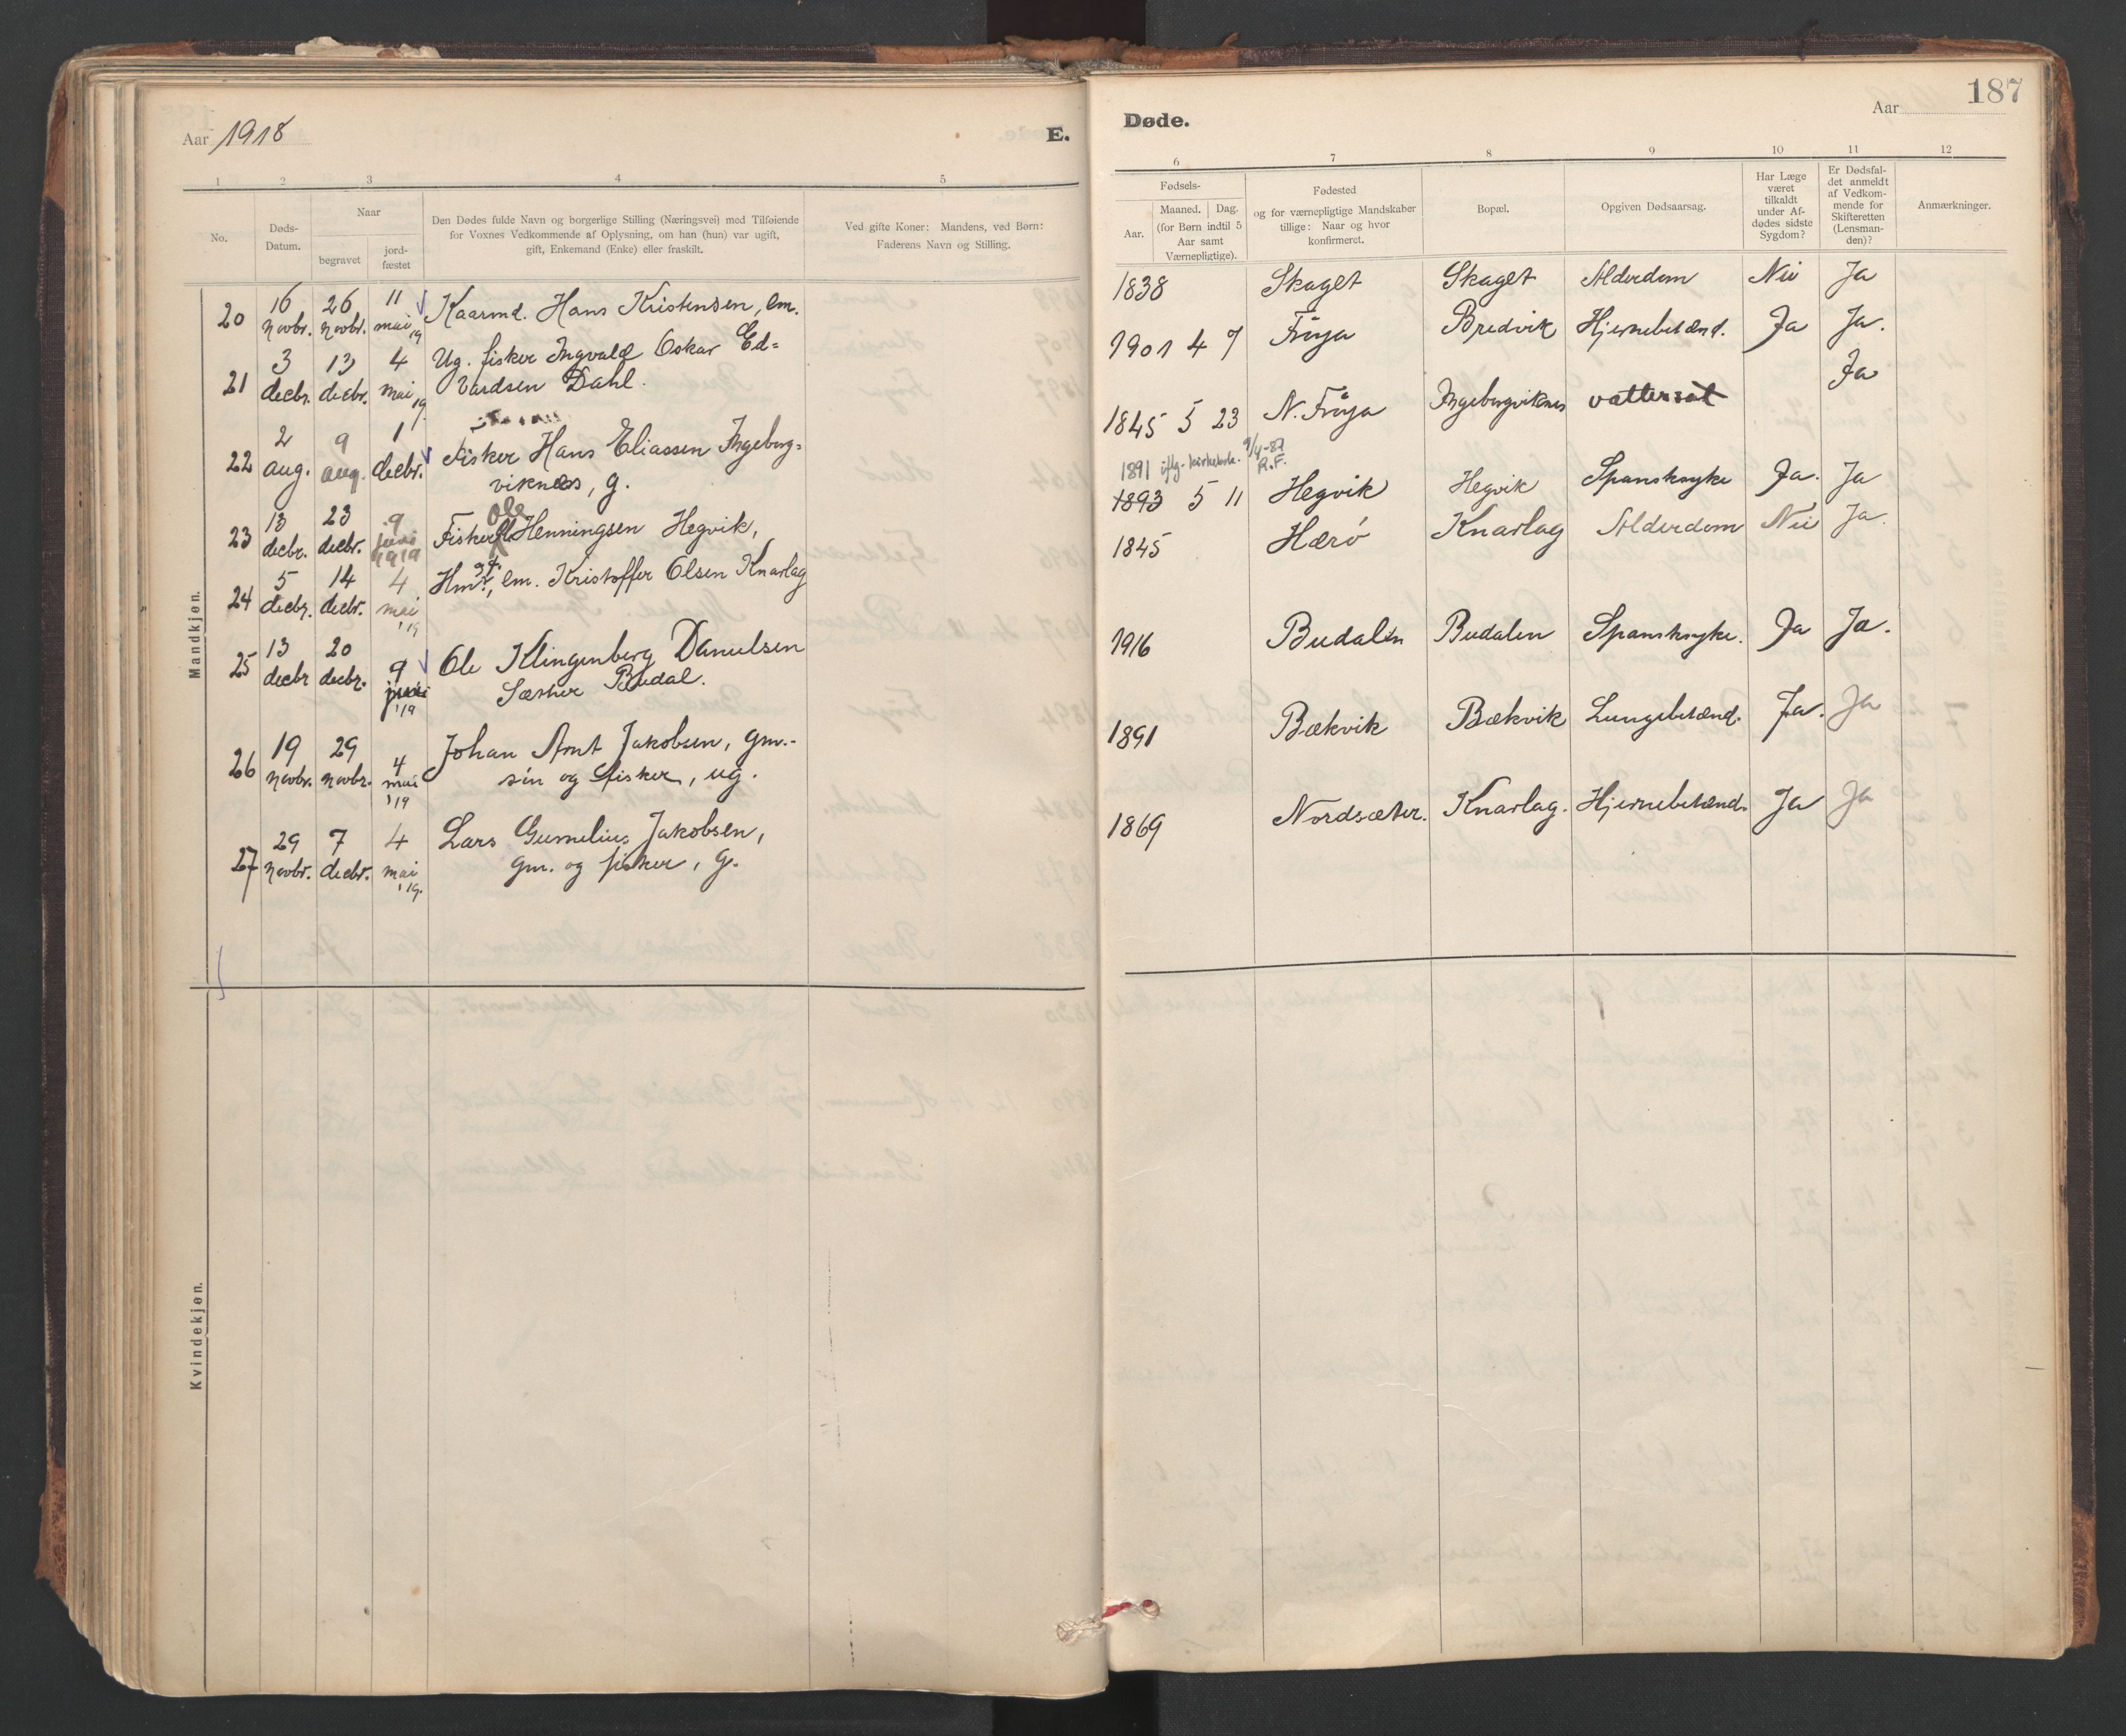 Aar 1918
E.
1 2 3 4 5
No.
Døds-
Datum.
Naar
begravet
jord-
fæstet
Den Dødes fulde Navn og borgerlige Stilling (Næringsvei) med Tilføiende
for Voxnes Vedkommende af Oplysning, om han (hun) var ugift,
gift, Enkemand (Enke) eller fraskilt.
Ved gifte Koner: Mandens, ved Børn:
Faderens Navn og Stilling.
Mandkjøn.
20 16 novbr. 26 novbr. 11 mai 19 Kaarmd. Hans Kristensen, em.
21 3 decbr. 13 decbr. 4 mai 19. Ug. fisker Ingvald Oskar Ed=
vardsen Dahl.
22 2 aug. 9 aug. 1 decbr. Fisker Hans Eliassen Ingeborg=
viknes, g.
23 13 decbr. 23 decbr. 9 juni 1919 Fisker Ole Henningsen Hegvik,
24 5 decbr. 14 decbr. 4 mai '19 Hm., em. Kristoffer Olsen Knarlag
25 13 decbr 20 decbr. 9 juni '19 Ole Klingenberg Danielsen
Sæther Budal.
26 19 novbr. 29 novbr. 4 mai '19 Johan Arnt Jakobsen, gm.-
søn og fisker, ug.
27 29 novbr. 7 decbr. 4 mai '19. Lars Gumelius Jakobsen,
gm. og fisker, g.
Kvindekjøn.
Døde.
Aar
187
6 7 8 9 10 11 12
Fødsels-
Aar.
Maaned. Dag.
(for Børn indtil 5
Aar samt
Værnepligtige).
Fødested
og for værnepligtige Mandskaber
tillige: Naar og hvor
konfirmeret.
Bopæl.
Opgiven Dødsaarsag.
Har Læge
været
tilkaldt
under Af-
dødes sidste
Sygdom?
Er Dødsfal-
det anmeldt
af Vedkom-
mende for
Skifteretten
(Lensman-
den)?
Anmærkninger.
1838 Skaget Skaget Alderdom Nei Ja
1901 4 7 Frøya Bredvik Hjernebetænd. Ja Ja.
1845 5 23 N. Frøya Ingeborgviknes vattersot Ja
1891 iflg. kirkebok. 9/4-87 R.F.
1893 5 11 Hegvik Hegvik Spansksyke Ja. Ja
1845 Hærø Knarlag Alderdom Nei Ja.
1916 Budalen Budalen Spansksyke. Ja Ja.
1891 Bækvik Bækvik Lungebetænd. Ja. Ja
1869 Nordsæter. Knarlag. Hjernebetænd. Ja Ja